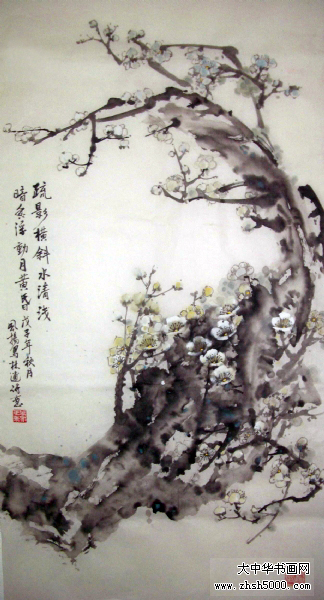 疏影横斜水清浅
暗香浮動月黄昏 戊子年秋月
大中华书画网
www.zhsh5000.com